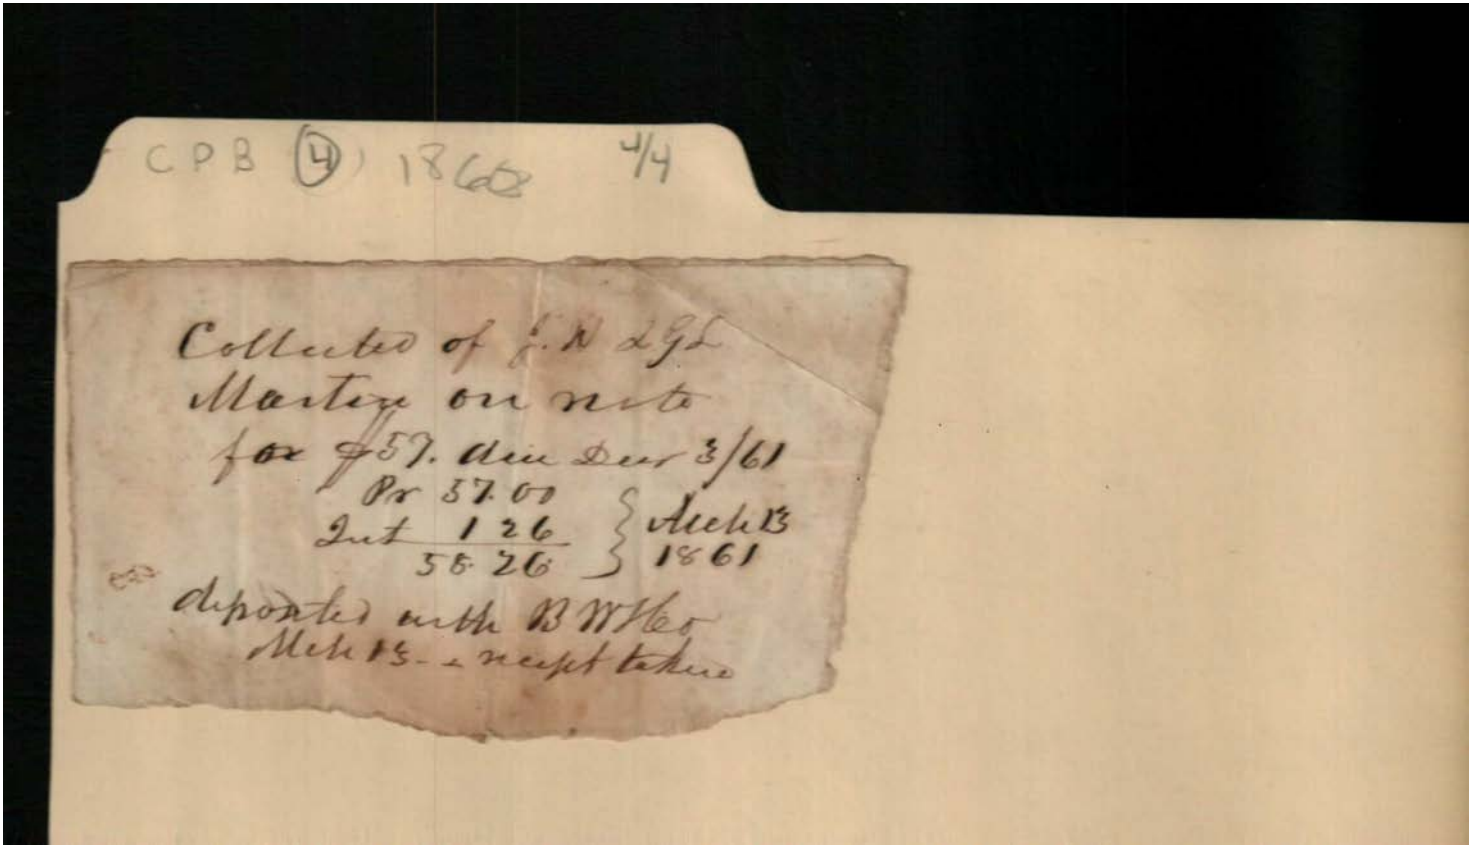 CPB (4) 1860 4/4
Collected of J. N & G L
Martin on note
for $57. due Decr 3/61
Pr 57.00
Int 1 26 } Mch 13
58.26 1861
deposited with B W & Co
Mch 13 - & receipt taken